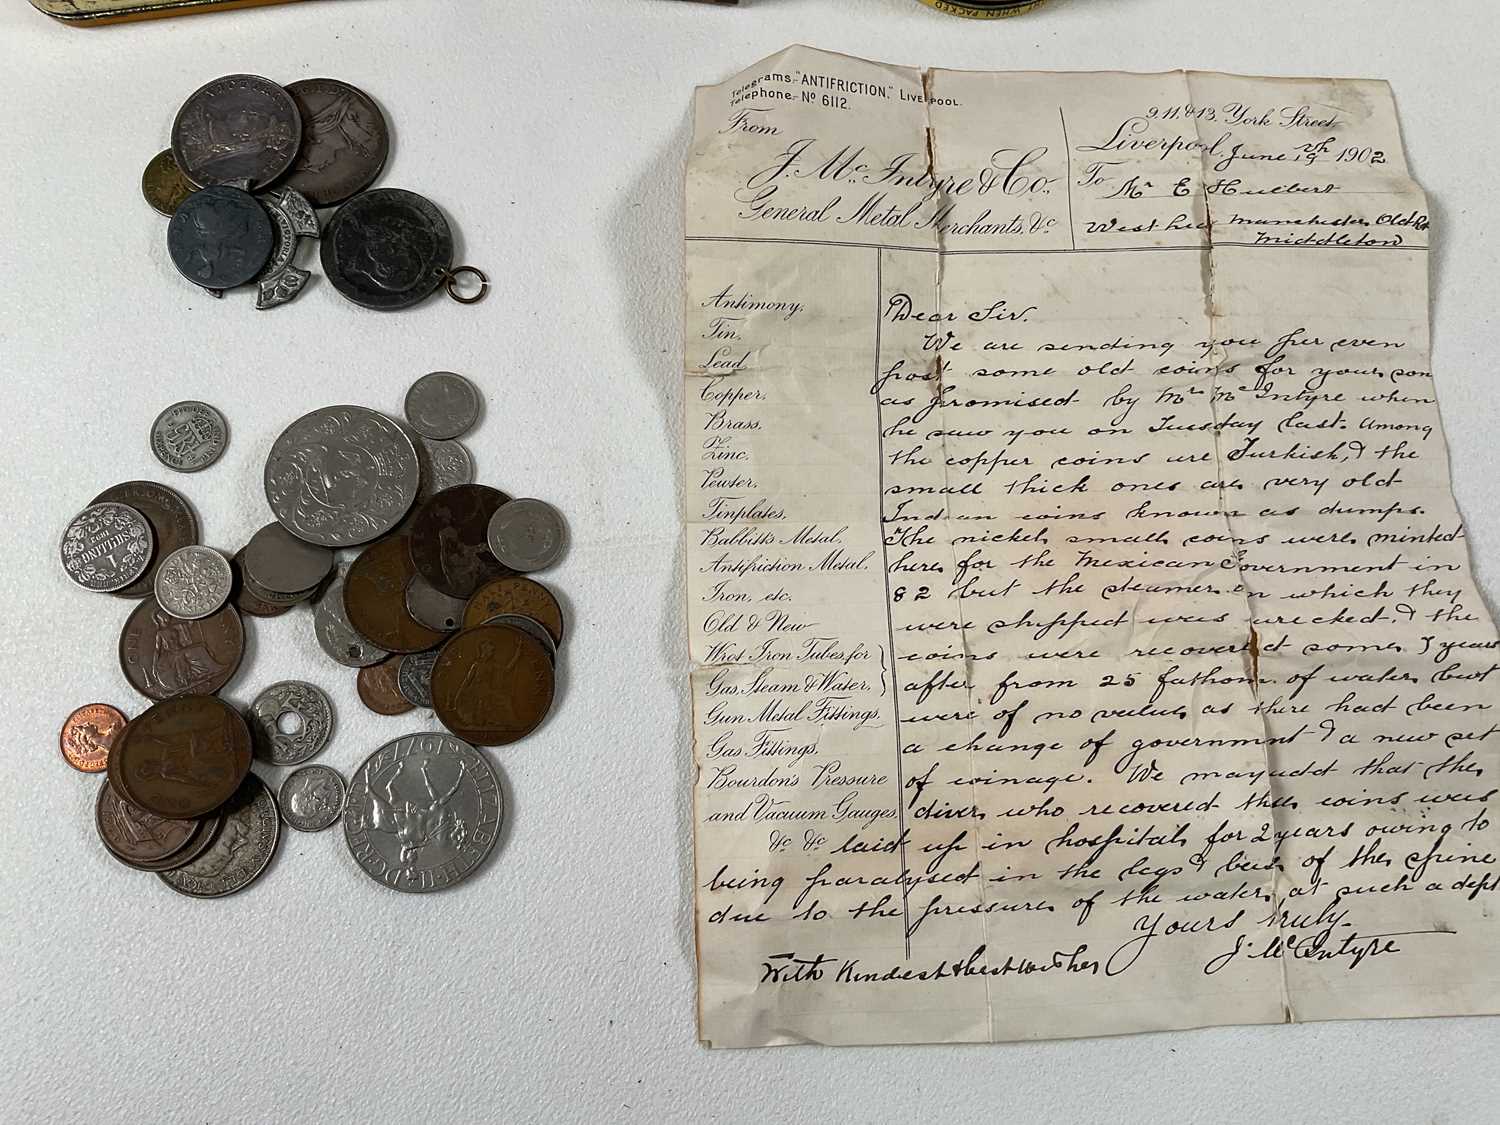 WHEN PACKED
Telegrams, "ANTIFRICTION," LIVERPOOL.
Telephone, No 6112.
From
J. Mc. Intyre & Co.,
General Metal Merchants, &c.
9, 11, & 13, York Street
Liverpool, June 19th 1902
To Mr E Hulbert
Manchester Old Rd
Middleton
Antimony,
Tin,
Lead,
Copper,
Brass,
Zinc,
Pewter,
Tinplates,
Babbitts Metal,
Antifriction Metal,
Iron, etc.
Old & New
Wrot Iron Tubes, for
Gas, Steam & Water,
Gun Metal Fittings,
Gas Fittings,
Bourdon's Pressure
and Vacuum Gauges,
&c &c
Dear Sir.
We are sending you per even
post some old coins for your son
as promised by Mr Mc Intyre when
he saw you on Tuesday last. Among
the copper coins are Turkish, & the
small thick ones are very old
Indian coins known as dumps.
The nickel small coins were minted
here for the Mexican Government in
82 but the steamer on which they
were shipped was wrecked, & the
coins were recovered some 7 years
after from 25 fathom of water but
were of no value as there had been
a change of government & a new set
of coinage. We may add that the
diver who recovered these coins was
laid up in hospital for 2 years owing to
being paralysed in the legs & of the spine
due to the pressure of the water at such a dept
Yours truly
J. Mc Intyre
With Kindest & best wishes
VICTORIA
ONE
SHILLING
1893
ONE
PENNY
HALF
PENNY
ELIZABETH · II · D·G·REG
1977